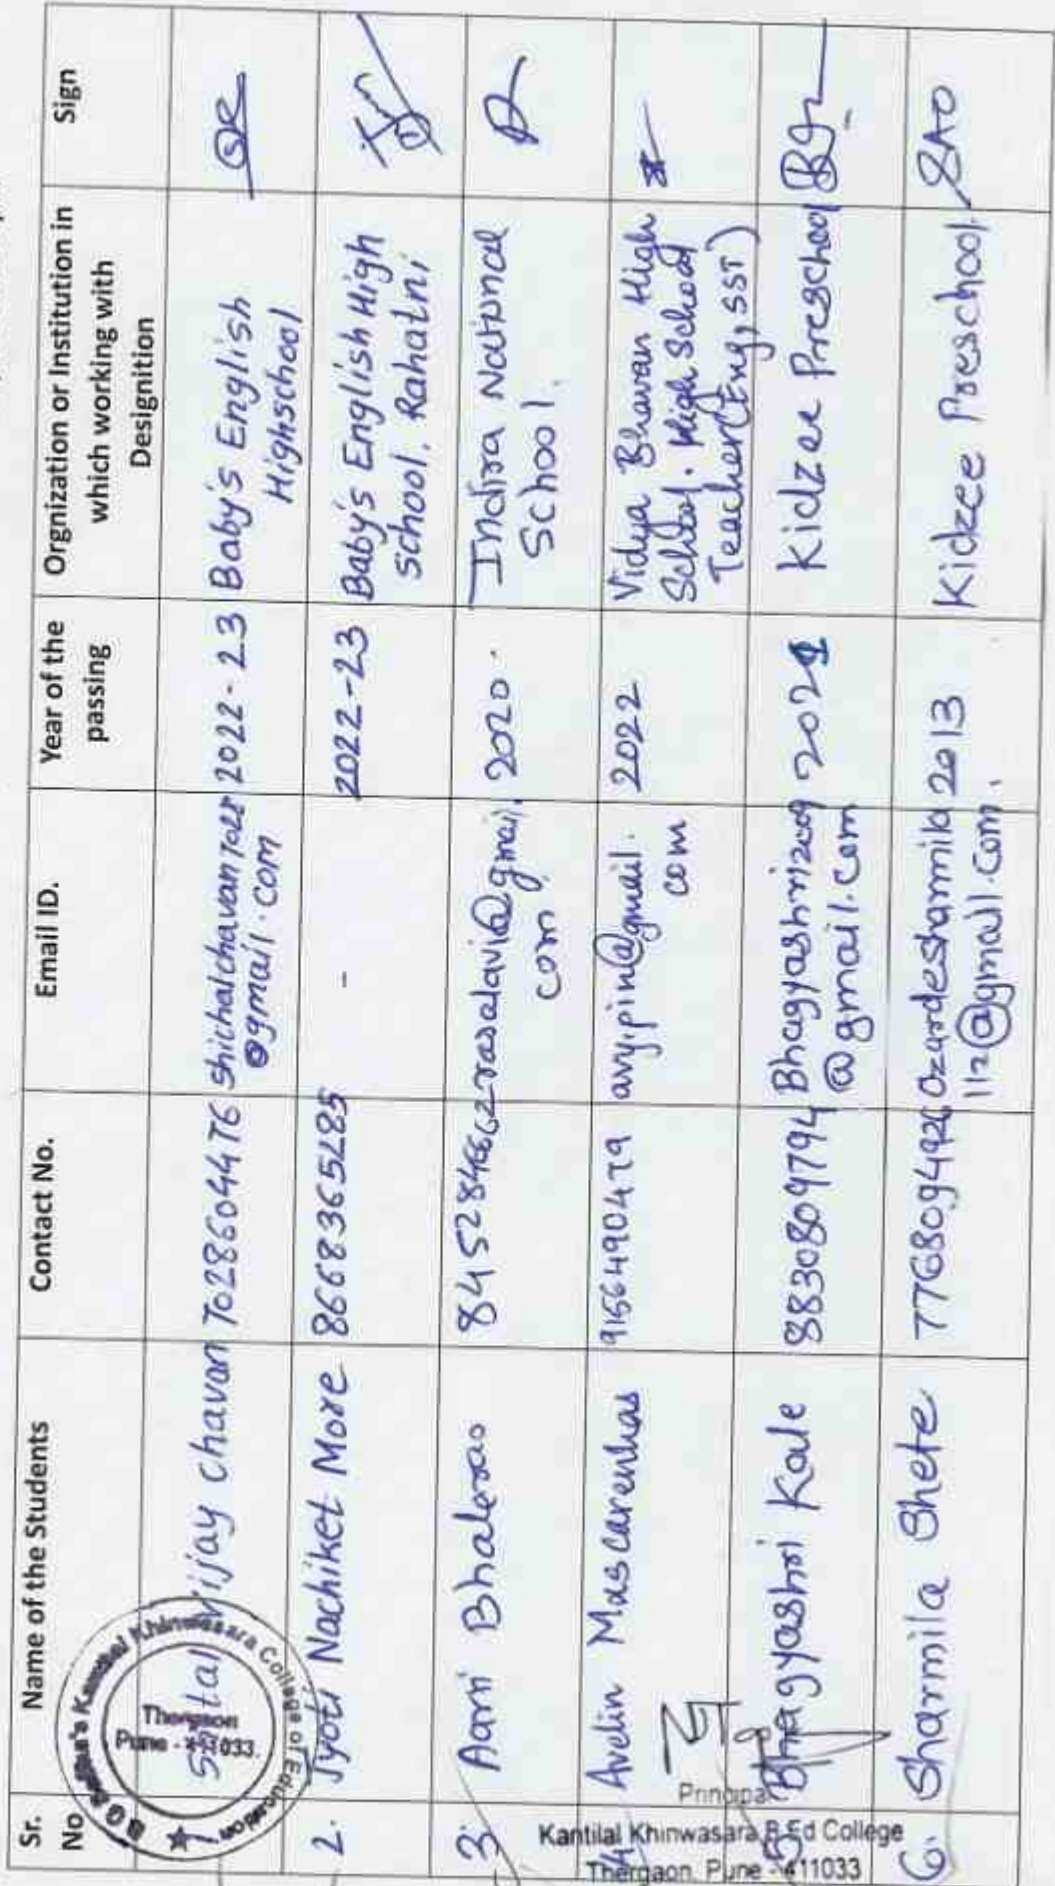 Sr. No
Name of the Students
Contact No.
Email ID.
Year of the passing
Orgnization or Institution in which working with Designition
Sign
1. Shital Vijay Chavan 7028604476
@gmail.com
2022-23
Baby's English
Highschool
2. Jyoti Nachiket More 8668365285 - 2022-23
Baby's English High
School, Rahatni
3. Aarti Bhalerao
com
2020.
Indira National
School.
4. Avelin Mascarenhas 9156490479
com
2022
Vidya Bhavan High
School. High School
Teacher (Eng, SST)
5. Bhagyashri Kale 8830809794
@gmail.com
Kidzee Preschool
6. Sharmila Shete 7768094926
112@gmail.com.
2013
Kidzee Preschool.
Kantilal Khinwasara College of Education
Thergaon
Pune - 411033.
Principal
Kantilal Khinwasara B.Ed College
Thergaon, Pune - 411033